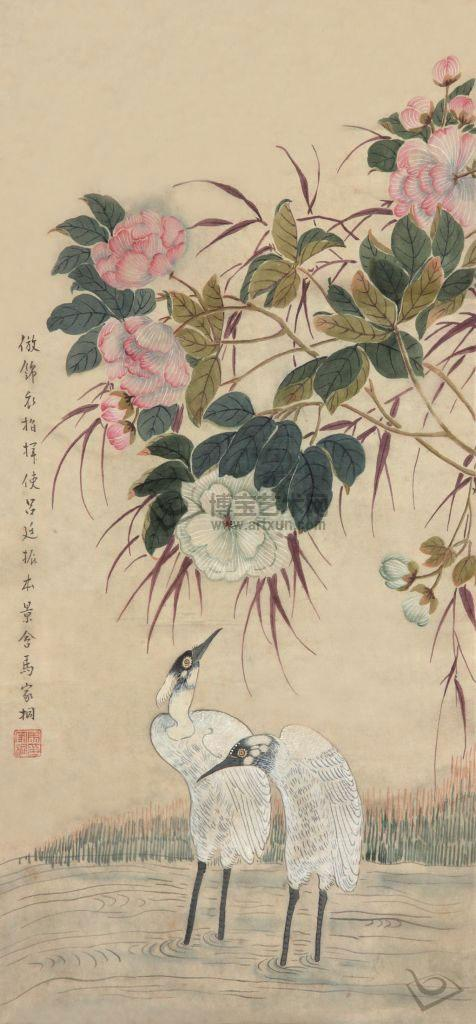 倣錦衣指揮使呂廷振本景含馬家桐
博宝艺术网
www.artxun.com